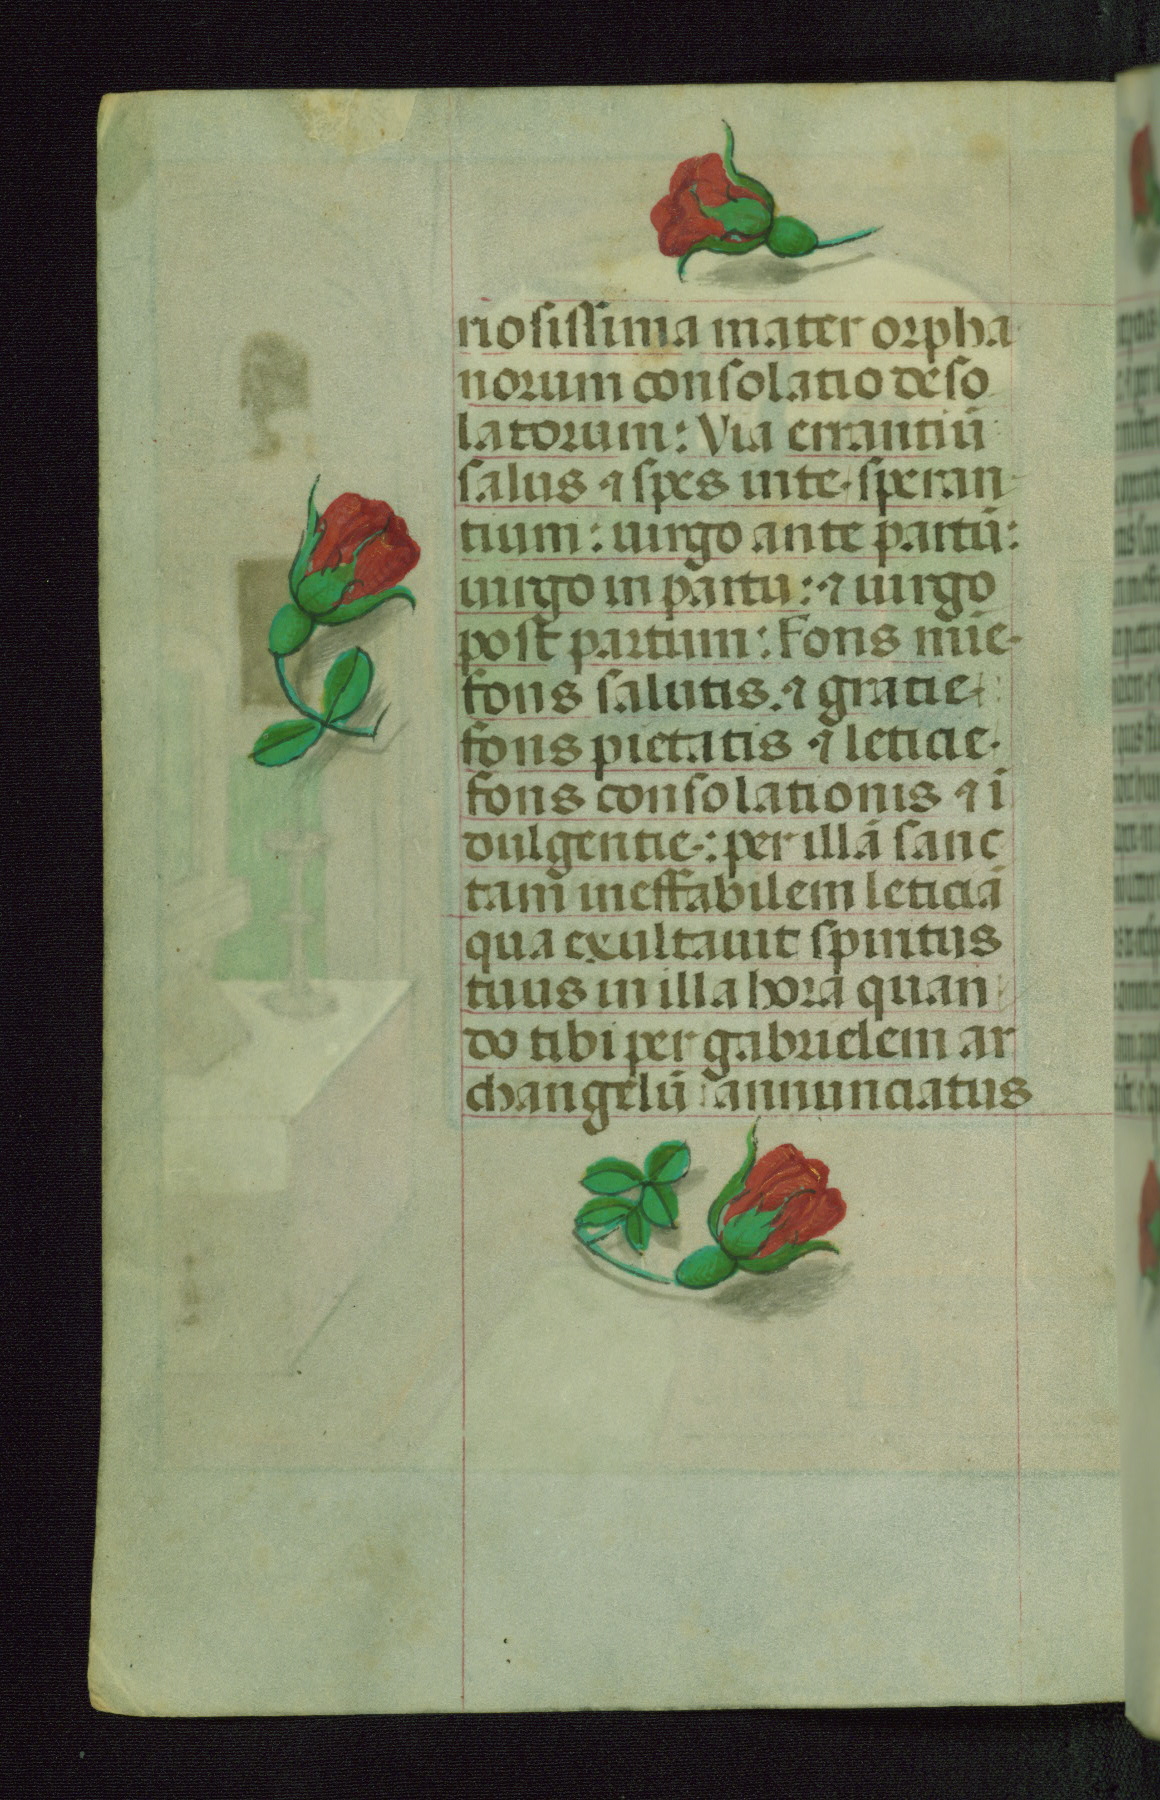 riosissima mater orpha
norum consolatio deso
latorum: Via errantiū
salus ⁊ spes in te speran
tium: uirgo ante partū:
uirgo in partu: ⁊ uirgo
post partum: Fons mīe
fons salutis. ⁊ gratie
fons pietatis ⁊ leticie.
fons consolationis ⁊ ī
dulgentie: per illā sanc
tam ineffabilem leticiā
qua exultauit spiritus
tuus in illa hora quan
do tibi per gabrielem ar
changelū annunciatus